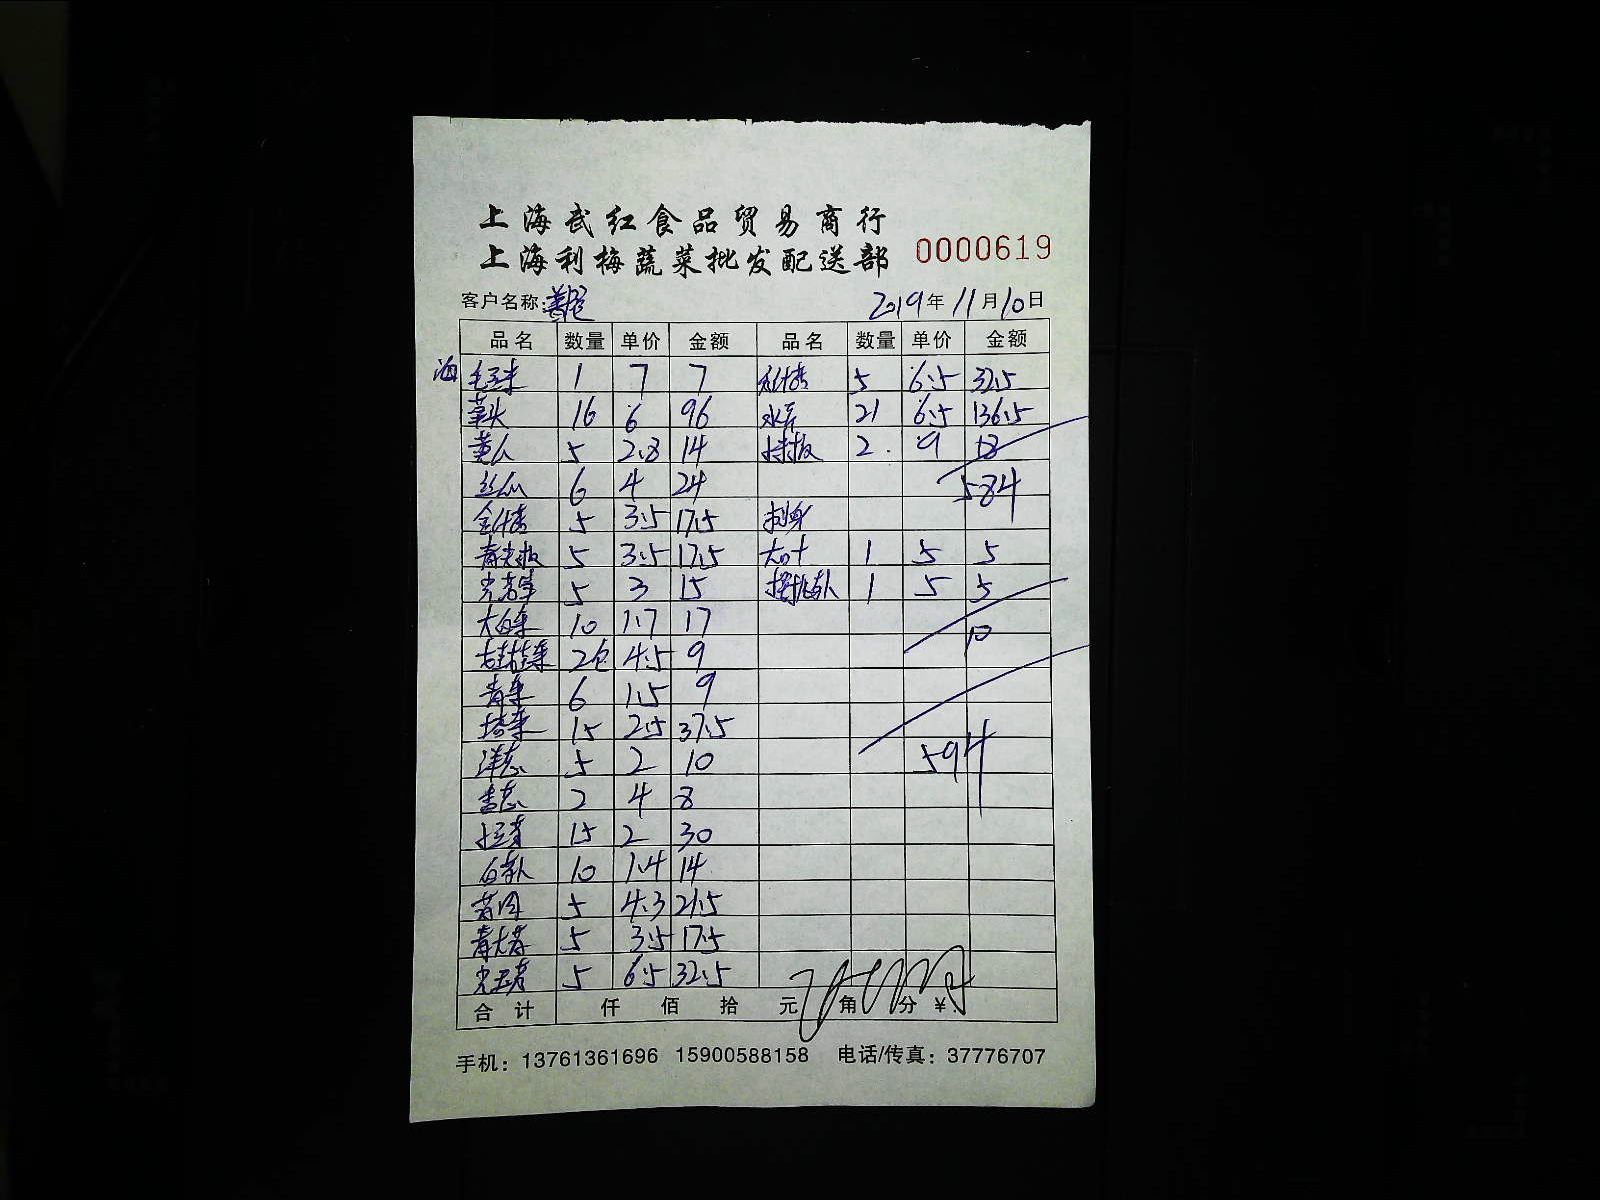 上海武红食品贸易商行
上海利梅蔬菜批发配送部 0000619
客户名称: 2019年11月10日
品名 数量 单价 金额 品名 数量 单价 金额
海 1 7 7 5 6.5 32.5
16 6 96 水芹 21 6.5 136.5
黄瓜 5 2.8 14 2 9 18
丝瓜 6 4 24 584
5 3.5 17.5 刺身
青尖椒 5 3.5 17.5 大叶 1 5 5
5 3 15 1 5 5
大白菜 10 1.7 17 10
2包 4.5 9
青菜 6 1.5 9
塔菜 15 2.5 37.5
洋葱 5 2 10 594
香葱 2 4 8
15 2 30
10 1.4 14
5 4.3 21.5
5 3.5 17.5
5 6.5 32.5
合计 仟 佰 拾 元 角 分 ¥:
手机：13761361696 15900588158 电话/传真：37776707